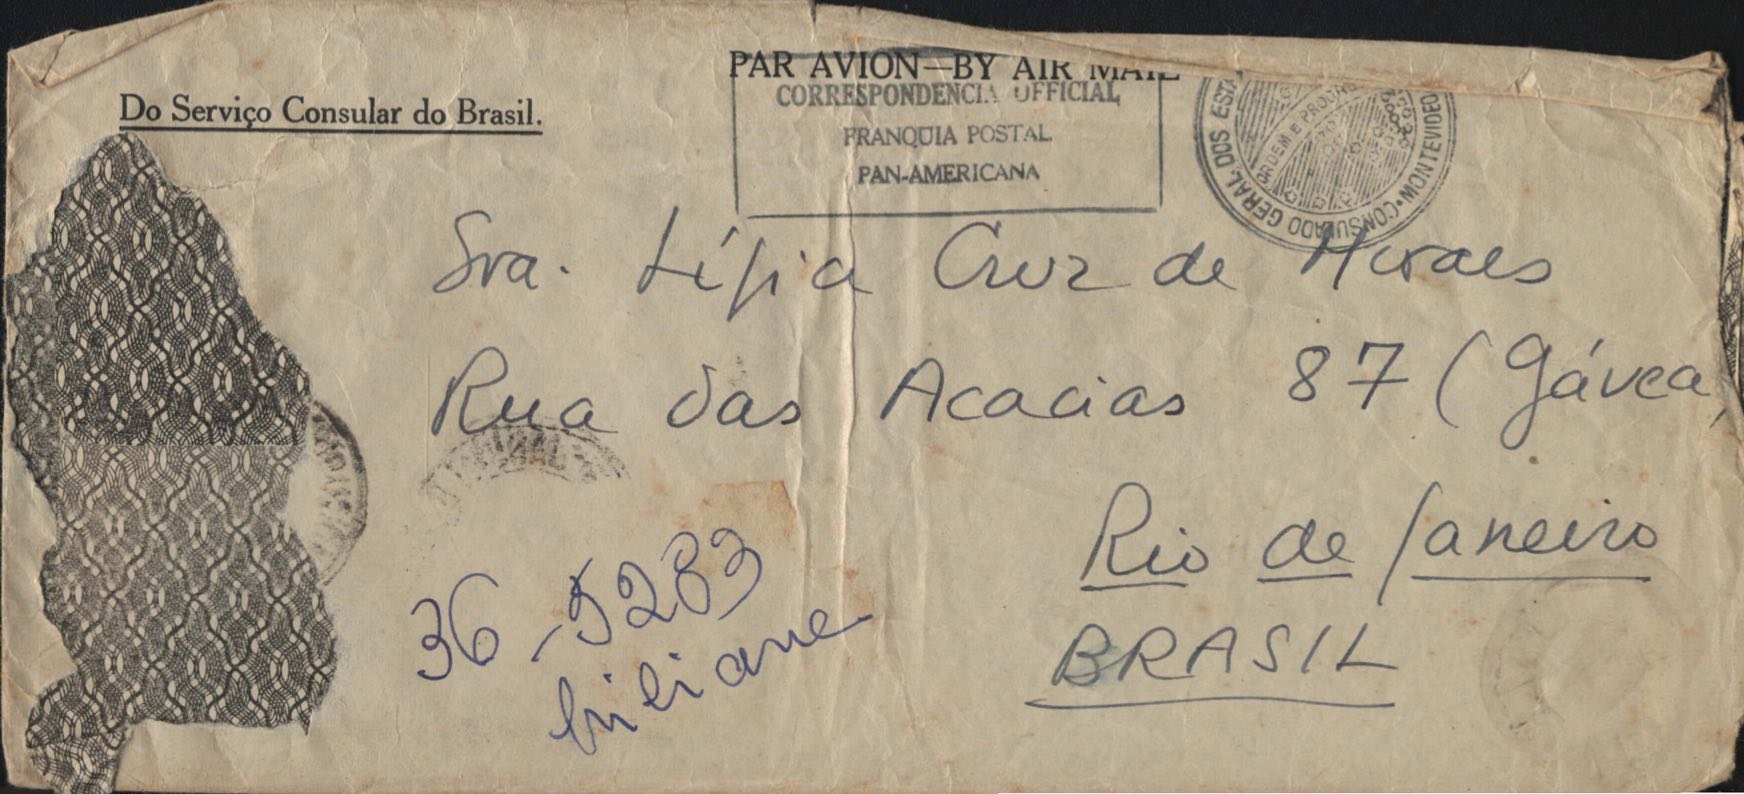 PAR AVION—BY AIR MAIL
Do Serviço Consular do Brasil.
CORRESPONDENCIA OFFICIAL
FRANQUIA POSTAL
PAN-AMERICANA
CONSULADO GERAL DOS ESTA
MONTEVIDEO
ORDEM E PROGR
Sra. Lígia Cruz de Moraes
Rua das Acacias 87 (Gávea,
Rio de Janeiro
BRASIL
36-5283